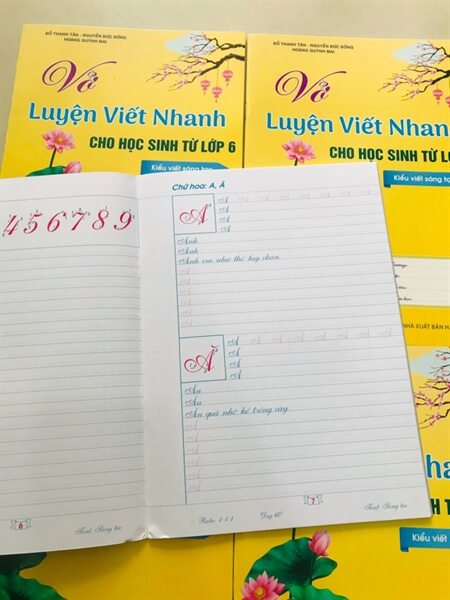 ĐỖ THANH TÂN - NGUYỄN ĐỨC ĐỒNG
HOÀNG QUỲNH MAI
Vở
Luyện Viết Nhanh
CHO HỌC SINH TỪ LỚP 6
Kiểu viết sáng tạo
ĐỖ THANH TÂN - NGUYỄN ĐỨC ĐỒNG
HOÀNG QUỲNH MAI
Vở
Luyện Viết Nhanh
CHO HỌC SINH TỪ L
Kiểu viết sáng tạo
4 5 6 7 8 9
6
Font: Sáng tạo
Chữ hoa: A, Ă
A A A A A A A A
A
A
A
A
Anh
Anh
Anh em như thể tay chân.
A
A
A
A
A
Ă Ă Ă Ă Ă Ă Ă Ă
Ă
Ă
Ă
Ă
Ăn
Ăn
Ăn quả nhớ kẻ trồng cây.
Ă
Ă
Ă
Ă
Ă
Ratio: 1:1:1
Deg 60°
7
Font: Sáng tạo
NHÀ XUẤT BẢN H
ha
SINH T
Kiểu viết